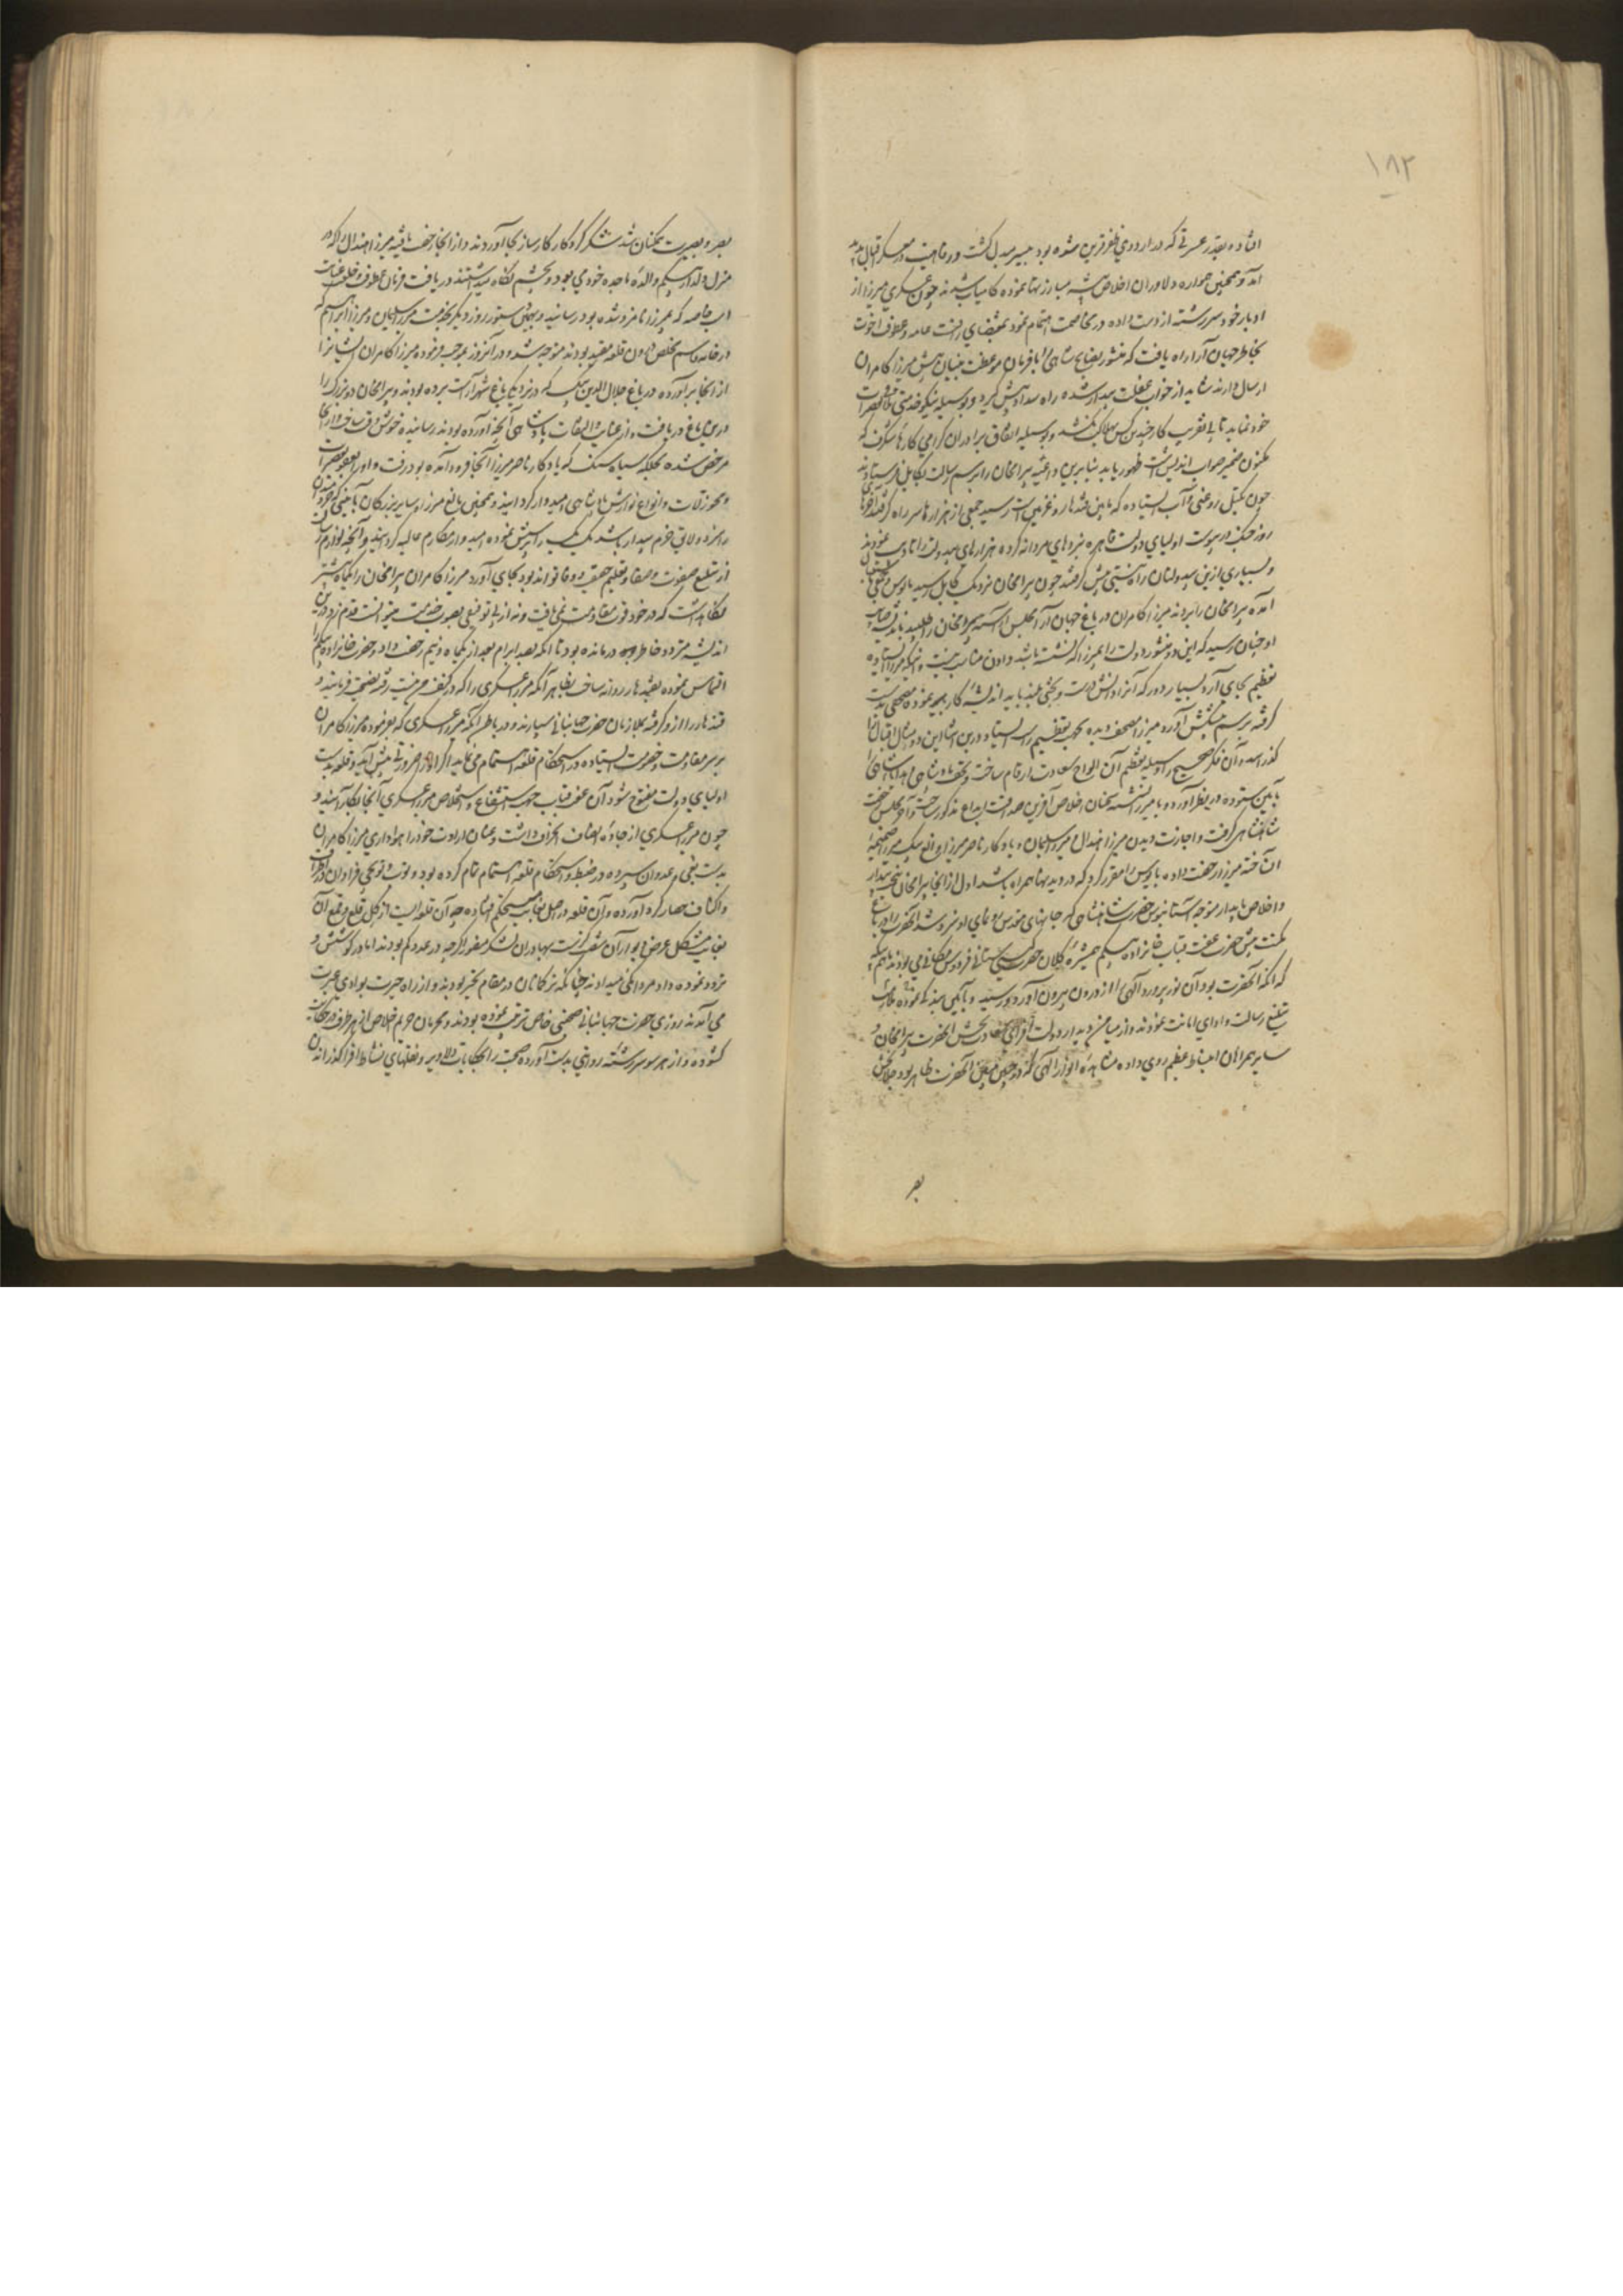 ۱۸۲
افتاده بقدر عسرتی که در اردوی ظفر قرین شده بود بیسر مبدل گشت و رفاهیت در معسکر اقبال پدید
آمد و همچنین همواره دلاوران اخلاص پیشه مبارزتها نموده کامیاب می شدند چون عسکری میرزا از
ادبار خود سررشته از دست داده در مخاصمت اهتمام نمود بمقتضای رافت عامه و عطوفت اخوت
بخاطر جهان آرا راه یافت که منشور نصایح شاهی را با فرمان موعظت بنیان پیش میرزا کامران
ارسال دارند شاید از خواب غفلت بیدار شده راه سداد پیش گیرد و بوسیله نیکو خدمتی تلافی تقصیرات
خود نماید تا بی تقریب کار چندین کس بهلاک نکشد و بوسیله اتفاق برادران گرامی کارهای شگرف که
مکنون ضمیر صواب اندیش است ظهور یابد بنابرین داعیه بیرامخان را برسم رسالت بکابل فرستادند
چون بکتل روغنی و آب ایستاده که مابین قندهار و غزنین است رسید جمعی از هزارها سر راه گرفتند
روز جنگ در پیوست اولیای دولت قاهره نبردهای مردانه کرده هزارهای بیدولت را تادیب نمودند
و بسیاری ازین بیدولتان راه نیستی پیش گرفتند چون بیرامخان نزدیک کابل رسید بابوس
آمده بیرامخان را بردند میرزا کامران در باغ چهارباغ مجلس آراسته بیرامخان را طلبید
او چنان رسید که این دو منشور دولت را بمیرزا که نشسته باشد دادن مناسب نیست و میرزا ایستاده
تعظیم بجای آرد بسیار دور که آنرا دانش درست و بختی بلند باید اندیشه کار بجمیه نموده مصحفی بدست
گرفته برسم پیشکش آورد میرزا مصحف دیده بجهت تعظیم راست ایستاد و درین اثنا این دو مثال اقبال را
گذرانید و آن فکر صحیح را وسیله تعظیم آن الواح سعادت ارقام ساخت و تحف پادشاهی و هدایای شاهی را
بآیین ستوده در نظر آورد و با میرزا نشسته سخنان اخلاص آفرین صداقت ابداع مذکور ساخت و آخر مجلس رخصت
شاهنشاهی گرفت و اجازت دیدن میرزا هندال و میرزا سلیمان و یادگار ناصر میرزا و الغ بیک میرزا ضمیمه
آن ساخته میرزا رخصت داده بابوس را مقرر کرد که در دیدنها همراه باشد اول از آنجا بیرامخان ببخت بیدار
و اخلاص پایدار متوجه آستانبوس حضرت شاهنشاهی که جانهای مقدس رونمای او سزد شد آنحضرت را در باغ
مکتب پیش حضرت عفت قباب خانزاده بیگم همشیره کلان حضرت گیتی ستانی فردوس مکانی می بودند ماهم بیگه
که انکه آنحضرت بود آن نورپرورد الهی را از درون بیرون آورد و رسید و بآیین بندگی نموده
تبلیغ رسالت و ادای امانت نمودند و از میامن دیدار دولت افزای سعادت بخش آنحضرت بیرامخان و
سایر همراهان انبساط عظیم روی داده مشاهده انوار الهی که در جبین مبین آنحضرت ظاهر بود
بصر
بصر و بصیرت همگنان شد شکر کردگار کارساز بجا آوردند و از آنجا رخصت یافته میرزا هندال را که در
منزل دلدار بیگم والده ماجده خود می بود و بچشم نگاه میداشتند دریافت فرمان عطوفت و خلعت عنایت
اسپ خاصه که بمیرزا نامزد شده بود رسانید و بهمین دستور روز دیگر بخدمت میرزا سلیمان و میرزا ابراهیم که
در خانه قاسم مخلص درون قلعه مقید بودند متوجه شد و در آنروز بموجب فرموده میرزا کامران ایشانرا
از آنجا برآورده در باغ جلال الدین بیگ که در نزدیکی باغ شهرآراست برده بودند و بیرامخان دو بزرگ را
درین باغ دریافت و از عنایت و التفات پادشاهی آنچه آورده بودند رسانیده خوشوقت ساخت و از آنجا
مرخص شده بجلگه سیاه سنگ که یادگار ناصر میرزا آنجا فرود آمده بود رفت و او را بعفو تقصیرات
و محو زلات و انواع نوازش پادشاهی امیدوار گردانید و همچنین بالغ میرزا و سایر بزرگان بآیینی که خرد
را سزد و لایق حزم بیدار باشد یک یک را پرسش نموده امیدوار مکارم عالیه گردانید و آنچه لوازم
از تبلیغ صفوت و صفا و تعلیم حقیقت و وفا تواند بود بجای آورد میرزا کامران بیرامخان را یکماه بیشتر
نگاهداشت که در خود قوت مقاومت نمی یافت و نه از بی توفیقی بصوب خدمت میتوانست قدم زد درین
اندیشه متردد خاطر درمانده بود تا آنکه بصد ابرام بعد از یکماه و نیم رخصت داد و حضرت خانزاده بیگم را
التماس نموده بقندهار روانه ساخت بظاهر آنکه میرزا عسکری را که در کنف حرف من رفته نصیحت فرمایند و
قندهار را از و گرفته بملازمان حضرت جهانبانی سپارند و در باطن آنکه میرزا عسکری که بفرموده میرزا کامران
بر سر مقاومت و خصومت ایستاده در استحکام قلعه اهتمام می نماید اگر او را ضرورتی پیش آید و قلعه بدست
اولیای دولت مفتوح شود آن عفت قباب جهت استشفاع و استخلاص میرزا عسکری آنجا بکار آیند و
چون میرزا عسکری از جاده انصاف انحراف داشت و عنان ارادت خود را بهواداری میرزا کامران
بدست بغی و عدوان سپرده در ضبط و استحکام قلعه اهتمام تمام کرده بود و توپ و توپچی فراوان در اطراف
و اکناف حصار گرد آورده و آن قلعه در اصل بغایت مستحکم افتاده چه آن قلعه ایست از گل قلع و قمع آن
بغایت مشکل عرض دیوار آن شصت گز است بهادران لشکر منصور اگرچه در عدد کم بودند اما در کوشش و
تردد نموده داد مردانگی میدادند چنانکه ترکمانان در مقام تحیر بودند و از راه حیرت بوادی غیرت
می آمدند روزی حضرت جهانبانی صحبتی خاص ترتیب نموده بودند و محرمان حریم اخلاص از هر طرف در حکایت
گشوده و از هر سو سررشته روایتی بدست آورده صحبت را بحکایات دلاویز و نقلهای نشاط افزا گذرانده